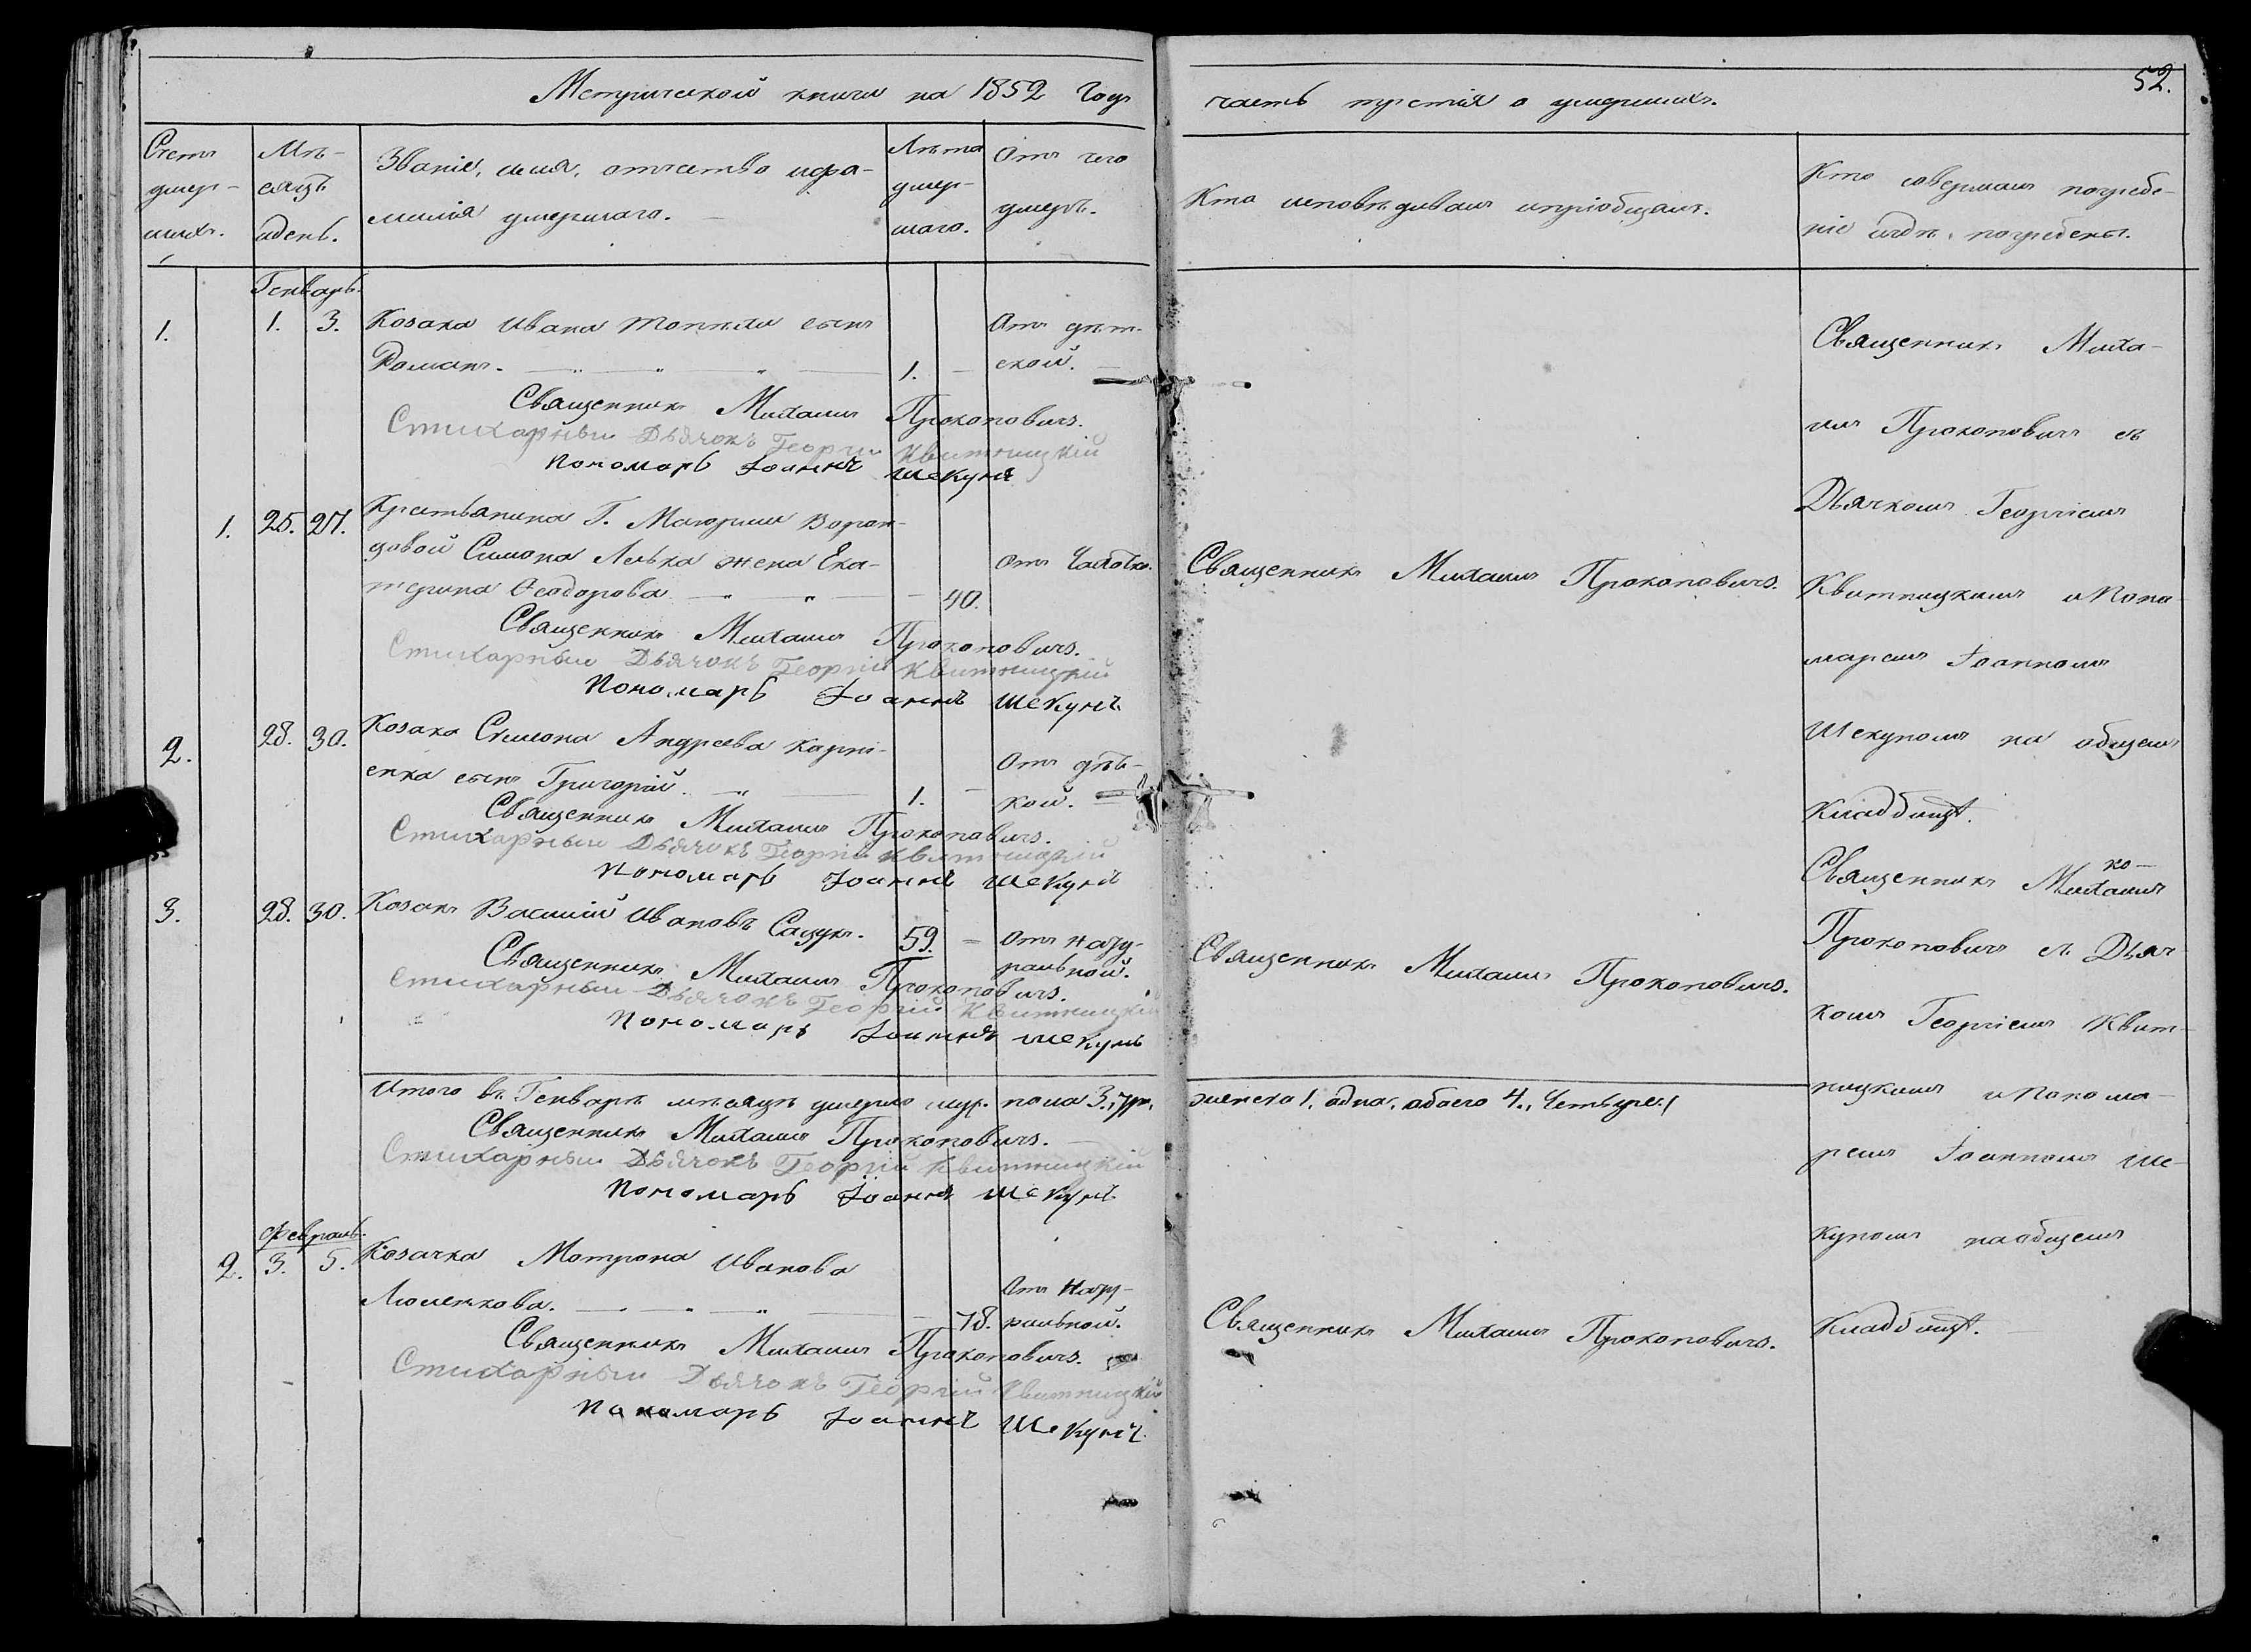 Метрической книги на 1852 годъ
часть третія о умершихъ.
52.
Счетъ умер-
шихъ.
Мѣ-
сяцъ
и день.
Званіе, имя, отчество и фа-
милія умершаго.
Лѣта
умер-
шаго.
Отъ чего
умеръ.
Кто исповѣдывалъ и пріобщалъ.
Кто совершалъ погребе-
ніе и гдѣ погребены.
Генварь.
1. 1. 3. Козака Ивана сынъ
Романъ. 1. Отъ дѣт-
ской.
Священникъ Михаилъ Прокоповичъ.
Стихарный Дьячокъ Георгій Квитницкій
Пономарь Іоаннъ Шекунъ
1. 25. 27. Крестьянина Г. Маіорши
Симона жена Ека-
терина Ѳеодорова 40. Отъ Чахотки.
Священникъ Михаилъ Прокоповичъ.
Стихарный Дьячокъ Георгій Квитницкій
Пономарь Іоаннъ Шекунъ
2. 28. 30. Козака Симона Андреева Карпі-
енка сынъ Григорій. 1. Отъ дѣт-
кой.
Священникъ Михаилъ Прокоповичъ.
Стихарный Дьячокъ Георгій Квитницкій
Пономарь Іоаннъ Шекунъ
3. 28. 30. Козакъ Василій Ивановъ Сацукъ. 59. Отъ нату-
ральной.
Священникъ Михаилъ Прокоповичъ.
Стихарный Дьячокъ Георгій Квитницкій
Пономарь Іоаннъ Шекунъ
Итого въ Генварѣ мѣсяцѣ умерло муж. пола 3. три,
женска 1. одна, обоего 4., Четыре.
Священникъ Михаилъ Прокоповичъ.
Стихарный Дьячокъ Георгій Квитницкій
Пономарь Іоаннъ Шекунъ
Февраль.
2. 3. 5. Козачка Мотрона Иванова
78. Отъ нату-
ральной.
Священникъ Михаилъ Прокоповичъ.
Стихарный Дьячокъ Георгій Квитницкій
Пономарь Іоаннъ Шекунъ
Священникъ Михаилъ Прокоповичъ.
Священникъ Михаилъ Прокоповичъ.
Священникъ Михаилъ Прокоповичъ.
Священникъ Миха-
илъ Прокоповичъ съ
Дьячкомъ Георгіемъ
Квитницкимъ и Поно
маремъ Іоанномъ
Шекуномъ на общемъ
Кладбищѣ.
Священникъ Михаилъ
Прокоповичъ съ Дьяч
комъ Георгіемъ Квит-
ницкимъ и Понома-
ремъ Іоанномъ Ше-
куномъ на общемъ
Кладбищѣ.